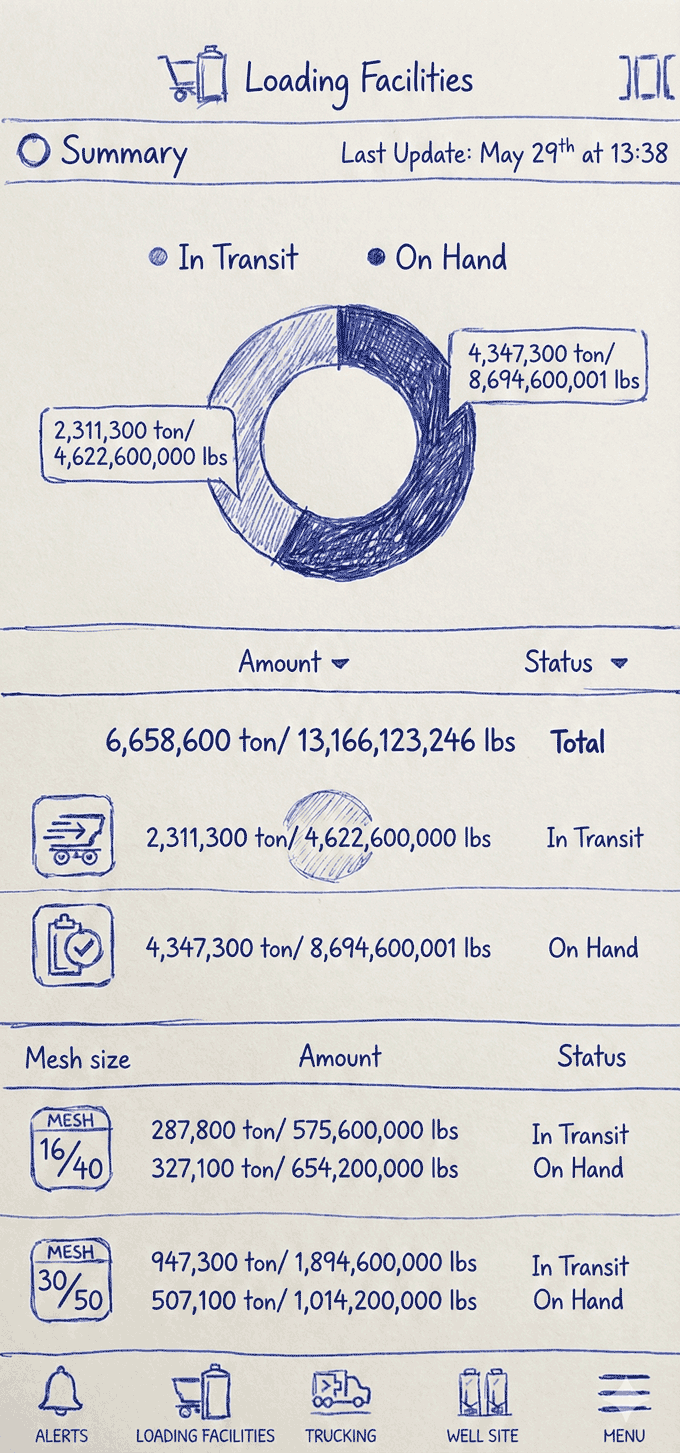 Loading Facilities
Summary
Last Update: May 29th at 13:38
In Transit
On Hand
4,347,300 ton/
8,694,600,001 lbs
2,311,300 ton/
4,622,600,000 lbs
Amount
Status
6,658,600 ton/ 13,166,123,246 lbs Total
2,311,300 ton/ 4,622,600,000 lbs In Transit
4,347,300 ton/ 8,694,600,001 lbs On Hand
Mesh size Amount Status
MESH
16/40
287,800 ton/ 575,600,000 lbs In Transit
327,100 ton/ 654,200,000 lbs On Hand
MESH
30/50
947,300 ton/ 1,894,600,000 lbs In Transit
507,100 ton/ 1,014,200,000 lbs On Hand
ALERTS
LOADING FACILITIES
TRUCKING
WELL SITE
MENU